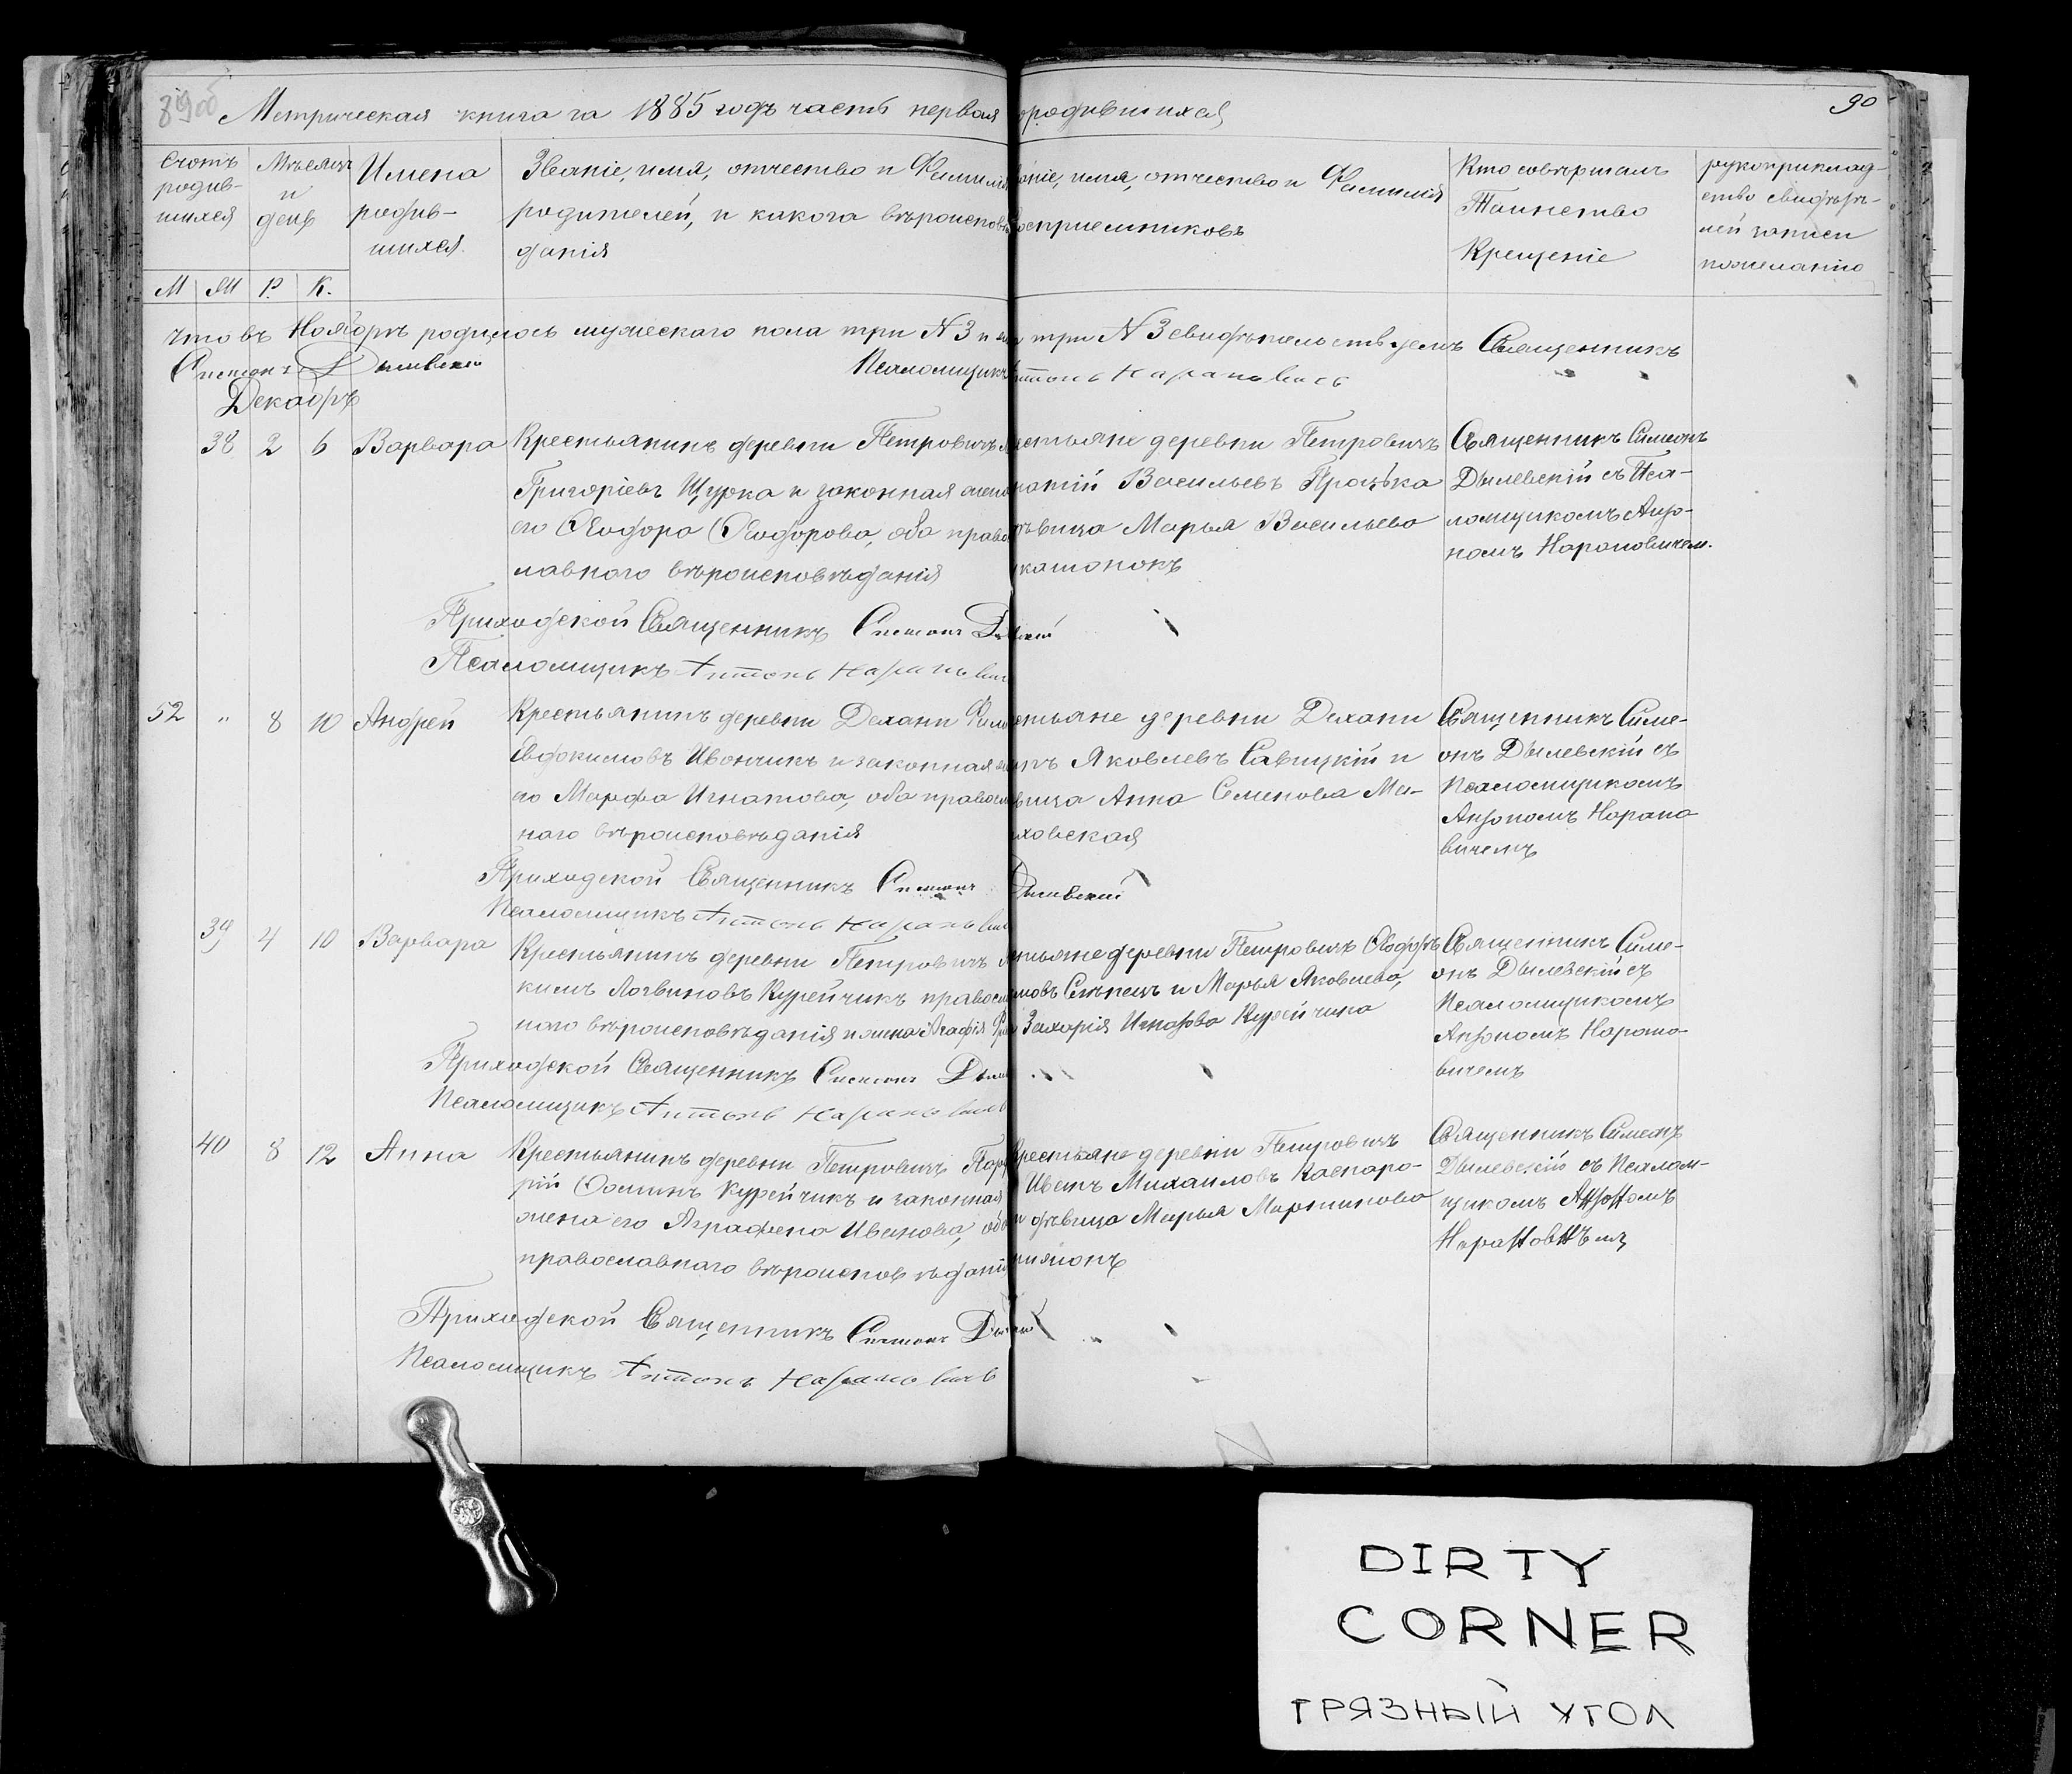 89об
Метрическая книга за 1885 годъ часть первая о родившихся
90
Счотъ родив-шихся
Мѣсяцъ и день
Имена родив-шихся.
Званіе, имя, отчество и Фамилія
родителей, и какога вѣроисповѣ
данія
Званіе, имя, отчество и Фамилія
воспріемниковъ
Кто совѣршалъ
Таинство
Крещеніе
рукоприклад-
ство свидѣте-
лей записи
пожеланію
М Ж Р. К.
что въ Ноябрѣ родилось мужескаго пола три № 3 и три № 3 свидѣтельствуемъ Священникъ
Симеонъ Дылевскій Псаломщикъ Антонъ Нарановичъ
Декабрь
38 2 6 Варвара
Крестьянинъ деревни Петровичъ
Григоріевъ Щурка и законная жена
его Ѳеодора Ѳеодорова, оба право
славного вѣроисповѣданія
деревни Петровичъ
Васильевъ
Марья Васильева
Священникъ Симеонъ
Дылевскій съ Пса-
ломщикомъ Анто-
номъ Нарановичем.
Приходской Священникъ Симеонъ
Псаломщикъ Антонъ Нарановичъ
52 " 8 10 Андрей
Крестьянинъ деревни Дехани
Евдокимовъ Ивончикъ и законная
его Марфа Игнатова, оба правосл
ного вѣроисповѣданія
деревни Дехани
Яковлевъ Савицкій и
Анна Семенова Ма-
ховская
Священникъ Симе-
онъ Дылевскій съ
Псаломщикомъ
Антономъ Нарано
вичемъ
Приходской Священникъ Симеонъ Дылевскій
Псаломщикъ Антонъ Нарановичъ
39 4 10 Варвара
Крестьянинъ деревни Петровичъ
кимъ Логвиновъ Курейчикъ правосл
ного вѣроисповѣданія и жена Агафія
деревни Петровичъ Ѳеодоръ
Слѣпецъ и Марья Яковлева,
Захарія Игнатова Курейчика
Священникъ Симе-
онъ Дылевскій съ
Псаломщикомъ
Антономъ Нарано-
вичемъ
Приходской Священникъ Симеонъ
Псаломщикъ Антонъ Нарановичъ
40 8 12 Анна
Крестьянинъ деревни Петровичъ Порфи
рій Ѳоминъ Курейчикъ и законная
жена его Аграфена Иванова, оба
православнаго вѣроисповѣданія
Крестьяне деревни Петровичъ
Иванъ Михаиловъ Каспаро-
и дѣвица Марья Мартинова
Священникъ Симеонъ
Дылевскій съ Псалом-
щикомъ Антономъ
Приходской Священникъ Симеонъ
Псаломщикъ Антонъ Нарановичъ
DIRTY
CORNER
ГРЯЗНЫЙ УГОЛ